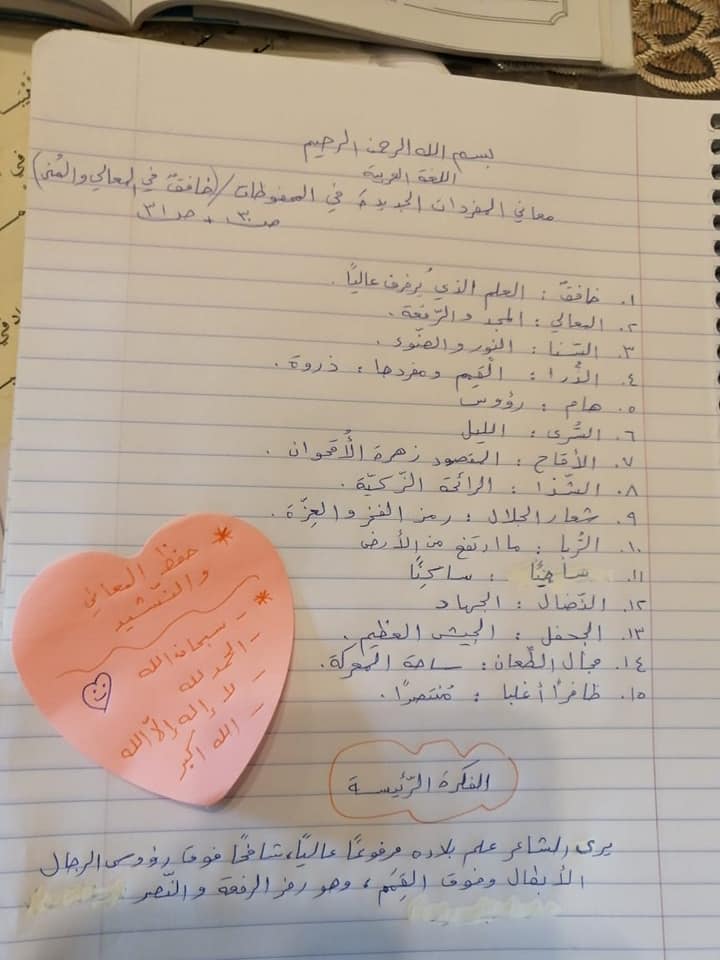 بسم الله الرحمن الرحيم
اللغة العربية
معاني المفردات الجديدة في المحفوظات / (خافقٌ في المعالي والمُنى)
ص٣٠ + ص٣١
١. خافقٌ : العلم الذي يُرفرف عاليًا.
٢. المعالي : المجد والرّفعة.
٣. السَّنا : النّور والضّوء.
٤. الذُّرا : الْقِمَم ومفردها : ذروة.
٥. هام : رؤوس
٦. السُّرى : الليل
٧. الأقاح : المقصود زهرة الأُقحوان.
٨. الشّذا : الرائحة الزّكيّة.
٩. شعار الجلال : رمز الفخر والعِزّة.
١٠. الرُّبا : ما ارتفع من الأرض
١١. ساجيًا : ساكِنًا
١٢. النّضال : الجهاد
١٣. الجحفل : الجيش العظيم.
١٤. مجال الطِّعان : ساحة المعركة.
١٥. ظافرًا أغلبا : مُنتصرًا.
* حفظ المعاني
والنّشيد
* - سبحان الله
- الحمد لله
- لا إله إلّا الله
- الله أكبر
الفكرة الرّئيسة
يرى الشاعر علم بلاده مرفوعًا عاليًا، شامخًا فوق رؤوس الرجال
الأبطال وفوق القِمَم، وهو رمز الرفعة والنّصر